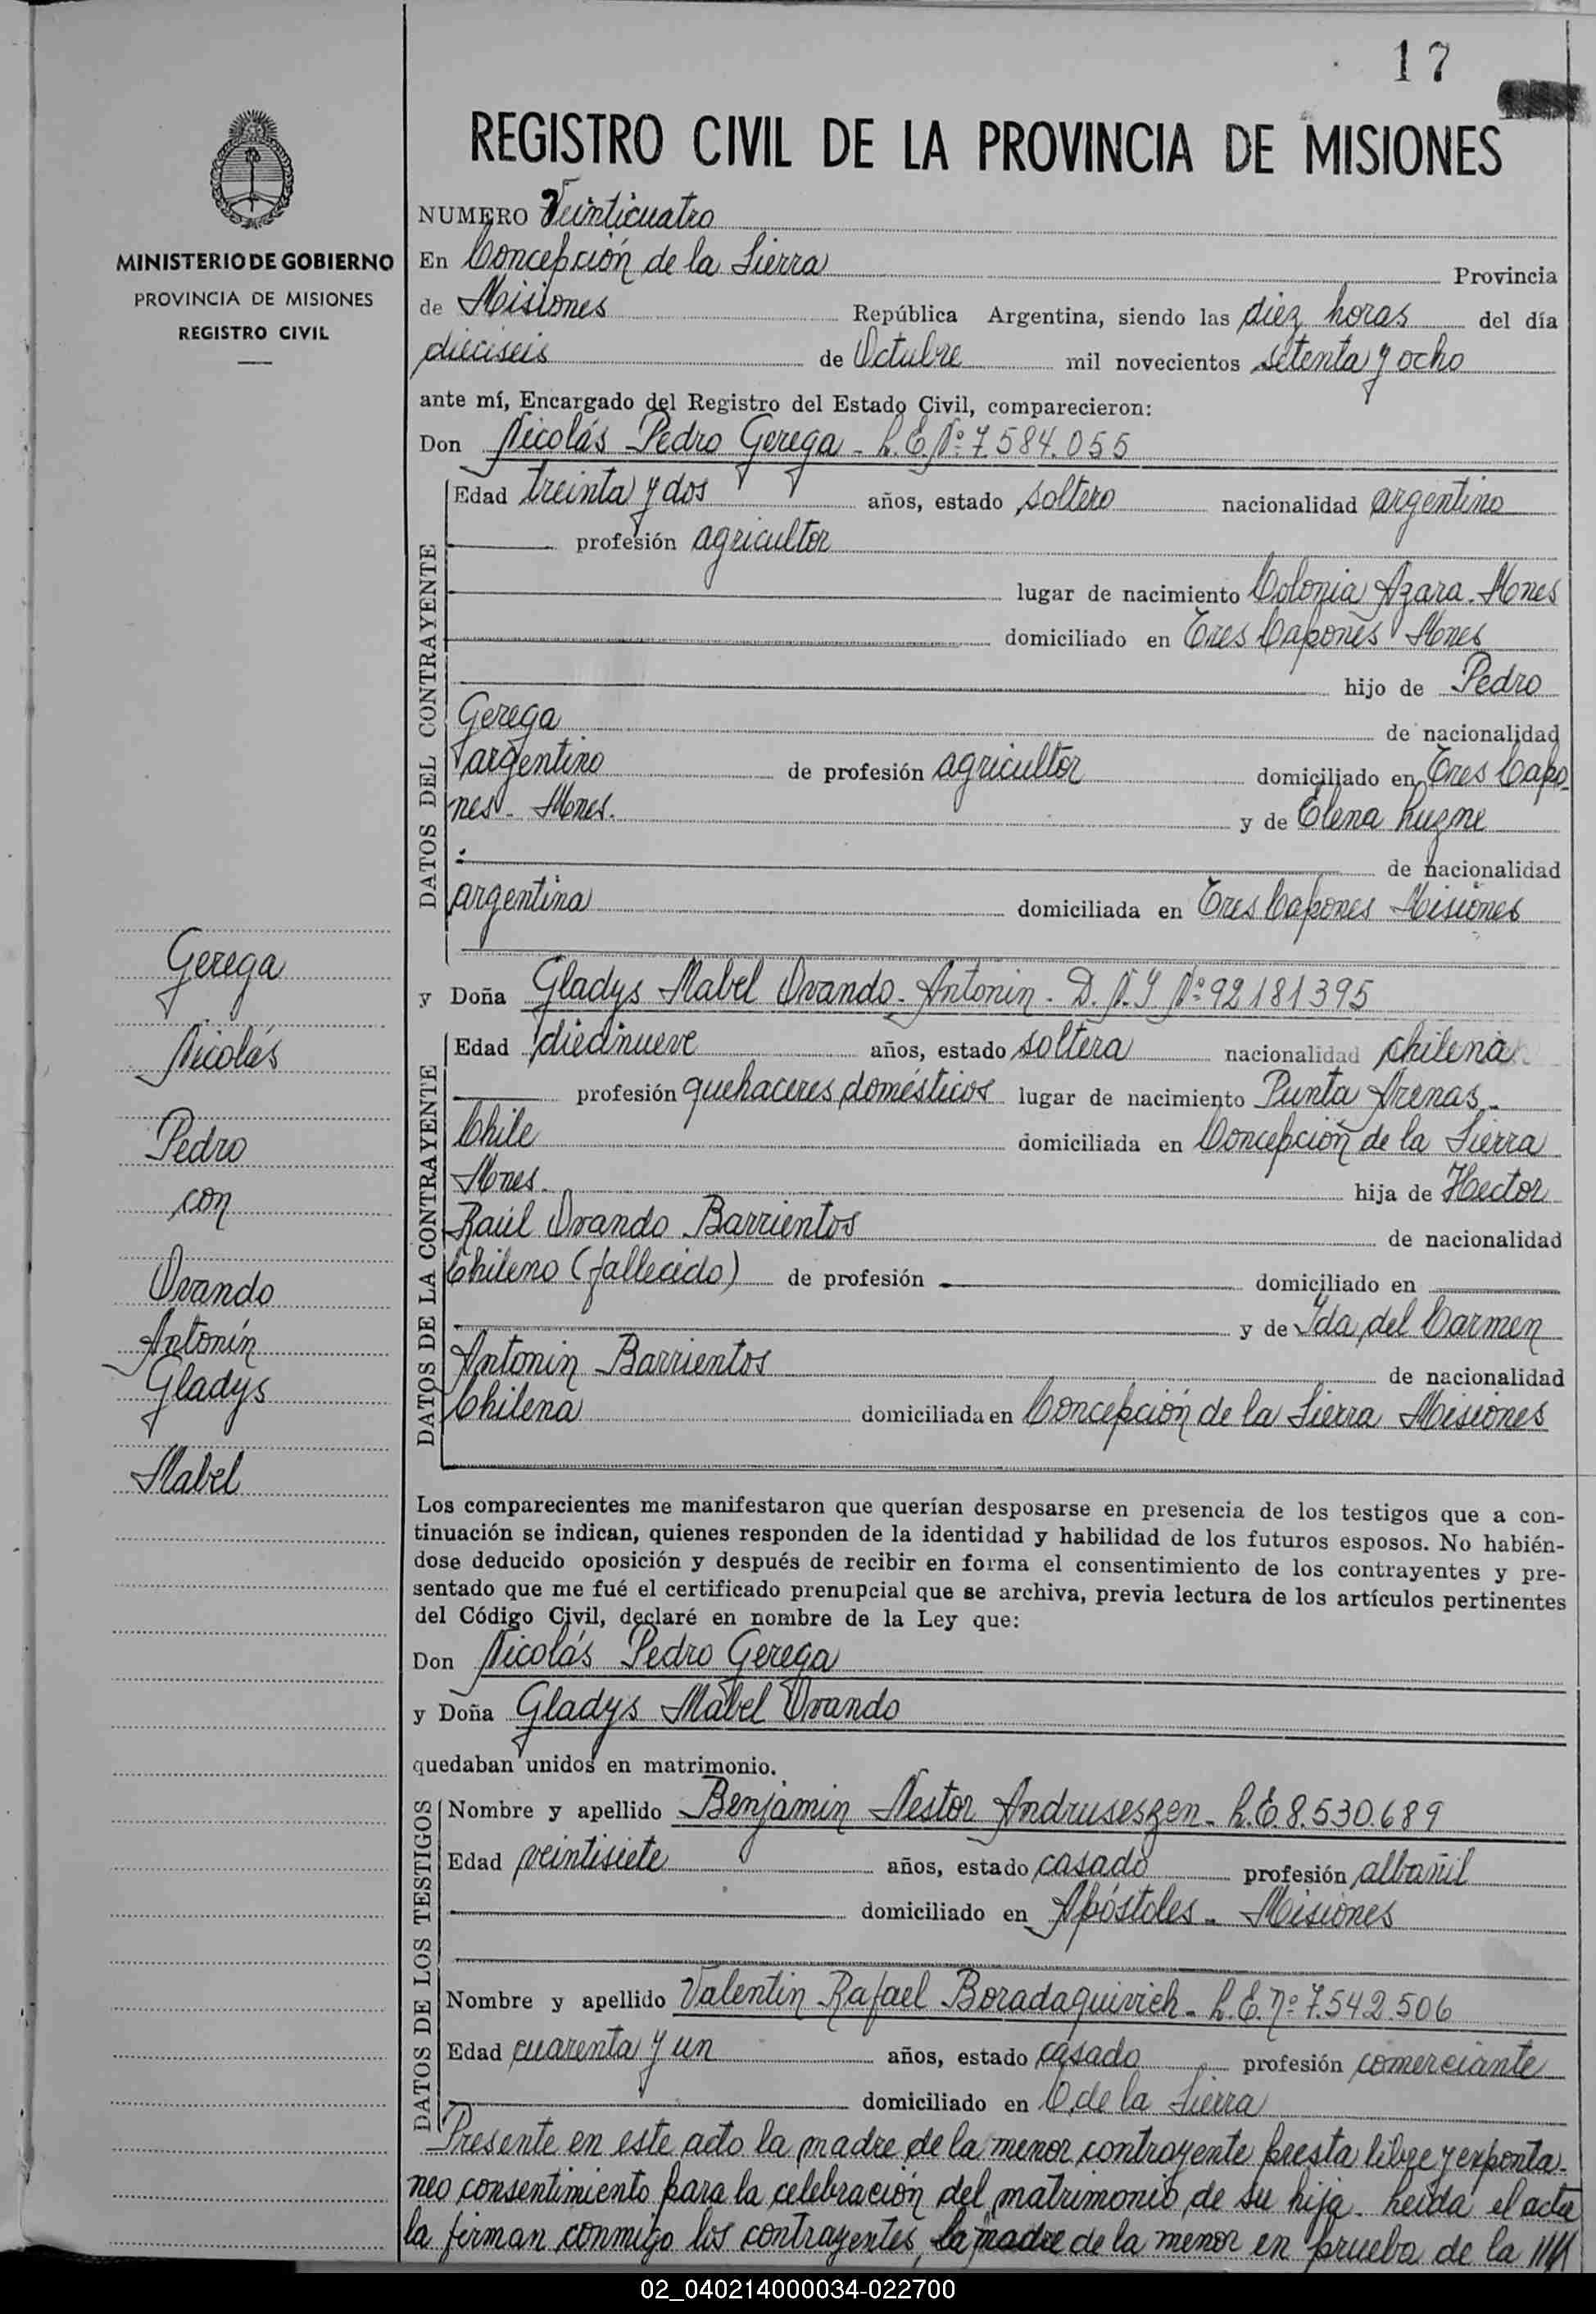 17
REGISTRO CIVIL DE LA PROVINCIA DE MISIONES
MINISTERIO DE GOBIERNO
PROVINCIA DE MISIONES
REGISTRO CIVIL
NUMERO Veinticuatro
En Concepción de la Sierra Provincia
de Misiones República Argentina, siendo las diez horas del día
dieciseis de Octubre mil novecientos setenta y ocho
ante mí, Encargado del Registro del Estado Civil, comparecieron:
Don Nicolás Pedro Gerega - L.E. Nº 7.584.055
DATOS DEL CONTRAYENTE
Edad treinta y dos años, estado soltero nacionalidad argentino
profesión agricultor
lugar de nacimiento Colonia Azara - Mones
domiciliado en Tres Capones Mones
hijo de Pedro
Gerega de nacionalidad
argentino de profesión agricultor domiciliado en Tres Capo-
nes - Mones. y de Elena Luzne
de nacionalidad
argentina domiciliada en Tres Capones Misiones
y Doña Gladys Mabel Ovando - Antonin - D.N.I Nº 92181395
DATOS DE LA CONTRAYENTE
Edad diecinueve años, estado soltera nacionalidad chilena
profesión quehaceres domésticos lugar de nacimiento Punta Arenas -
Chile domiciliada en Concepción de la Sierra
Mones. hija de Hector
Raúl Ovando Barrientos de nacionalidad
Chileno (fallecido) de profesión domiciliado en
y de Ida del Carmen
Antonin Barrientos de nacionalidad
Chilena domiciliada en Concepción de la Sierra Misiones
Gerega
Nicolás
Pedro
con
Ovando
Antonín
Gladys
Mabel
Los comparecientes me manifestaron que querían desposarse en presencia de los testigos que a con-
tinuación se indican, quienes responden de la identidad y habilidad de los futuros esposos. No habién-
dose deducido oposición y después de recibir en forma el consentimiento de los contrayentes y pre-
sentado que me fué el certificado prenupcial que se archiva, previa lectura de los artículos pertinentes
del Código Civil, declaré en nombre de la Ley que:
Don Nicolás Pedro Gerega
y Doña Gladys Mabel Ovando
quedaban unidos en matrimonio.
DATOS DE LOS TESTIGOS
Nombre y apellido Benjamin Nestor Andruseszen - L.E. 8.530.689
Edad veintisiete años, estado casado profesión albañil
domiciliado en Apóstoles - Misiones
Nombre y apellido Valentin Rafael Boradaquivich - L.E. nº 7.542.506
Edad cuarenta y un años, estado casado profesión comerciante
domiciliado en C. de la Sierra
Presente en este acto la madre de la menor contrayente presta libre y exponta-
neo consentimiento para la celebración del matrimonio de su hija - Leida el acta
la firman conmigo los contrayentes, la madre de la menor en prueba de la
02_040214000034-022700